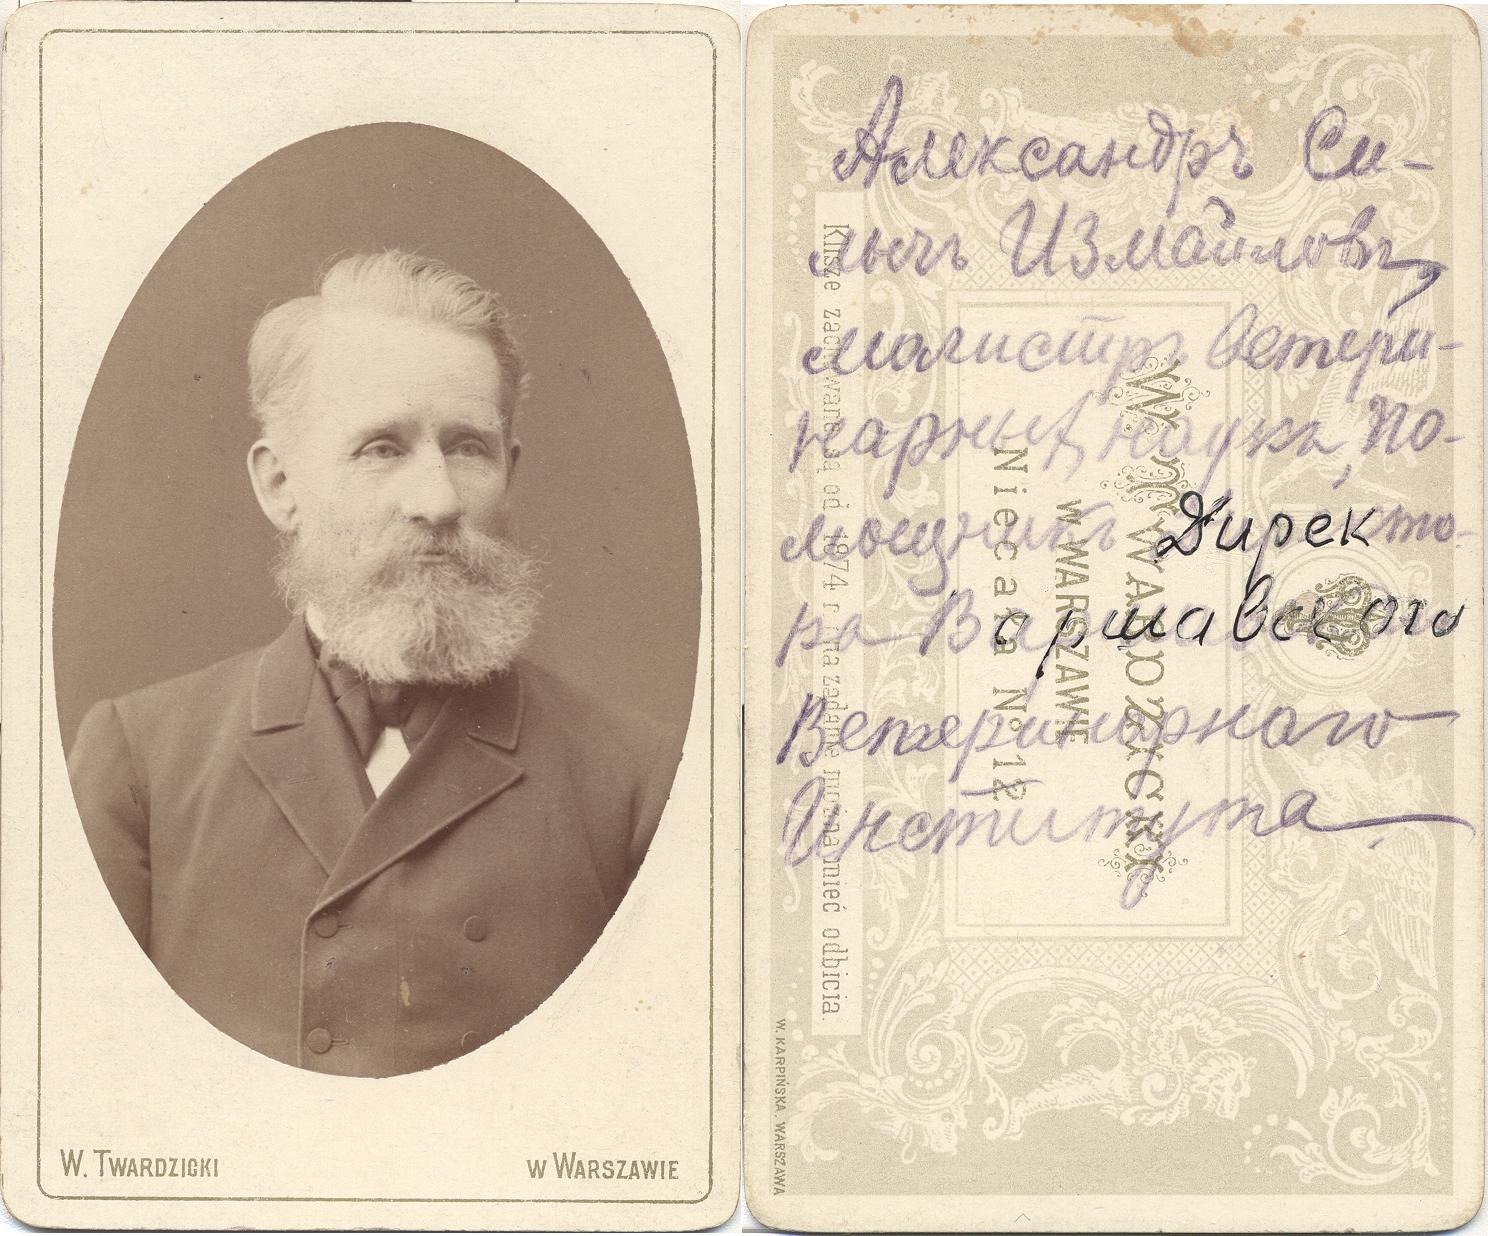 W. TWARDZICKI
W WARSZAWIE
Александръ Си-
лычъ Измайловъ,
магистръ ветери-
нарныхъ наукъ, По-
мощникъ Дирек то-
ра Варшавского
Ветеринарнаго
Института
Klisze zachowane są od 1874 r. i na żądanie można mieć odbicia.
Niecała No 12
w WARSZAWIE
W. TWARDZICKI
W. KARPIŃSKA. WARSZAWA